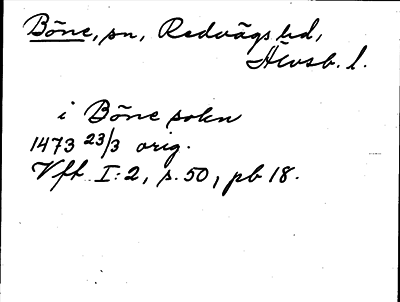 Böne, sn, Redvägs hd,
Älvsb. l.
i Böne sokn
1473 23/3 orig.
Vfh I:2, s. 50, pb 18.